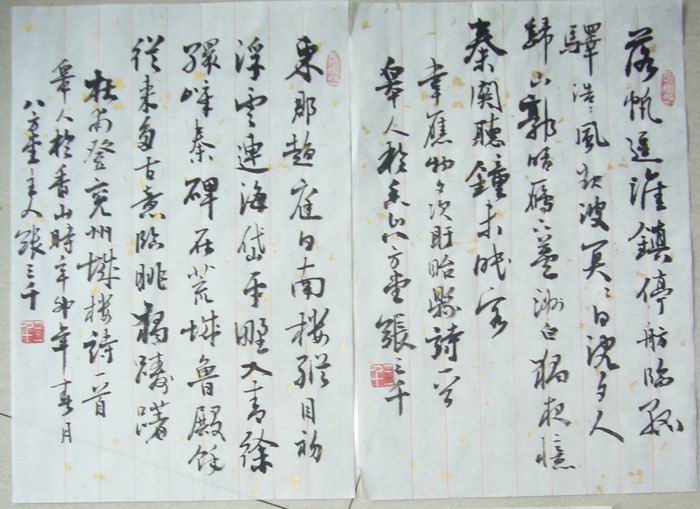 落帆逗淮鎮停舫臨孤
驛浩〻風起波冥〻日沉夕人
歸山郭暗雁下蘆洲白獨夜憶
秦關聽鐘未眠客
韋應物夕次盱眙縣詩一首
皋人於香山八方堂張三千
東郡趨庭日南楼縱目初
浮雲連海岱平野入青徐
孤嶂秦碑在荒城魯殿餘
從來多古意臨眺獨躊躇
杜甫登兗州城楼詩一首
皋人於香山時辛卯年春月
八方堂主人張三千